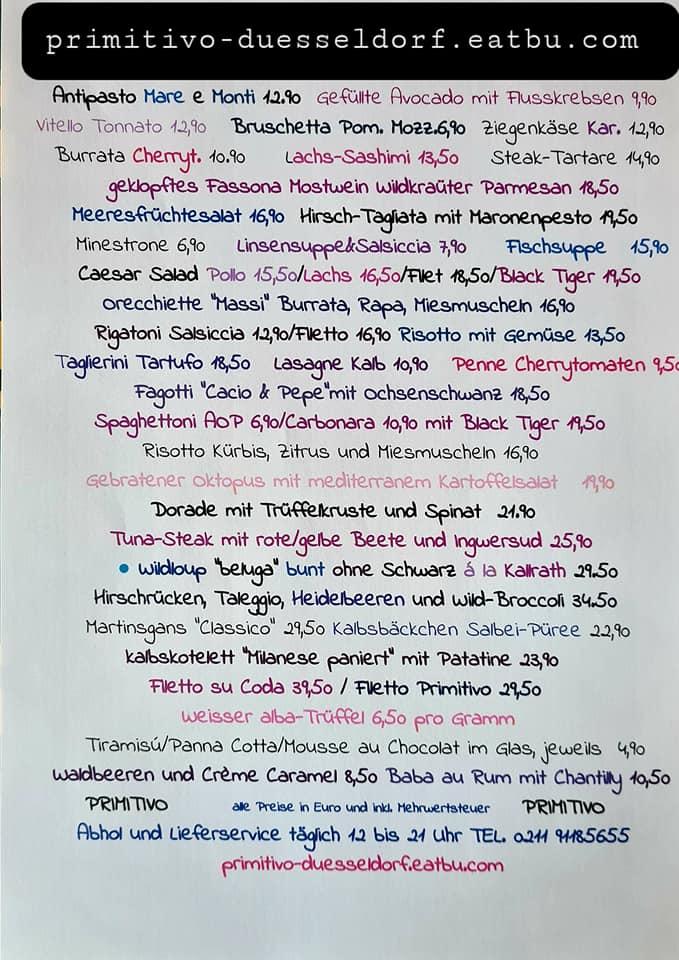 primitivo-duesseldorf.eatbu.com
Antipasto Mare e Monti 12.90 Gefüllte Avocado mit Flusskrebsen 9,90
Vitello Tonnato 12,90 Bruschetta Pom. Mozz.6,90 Ziegenkäse Kar. 12,90
Burrata Cherryt. 10.90 Lachs-Sashimi 13,50 Steak-Tartare 14,90
geklopftes Fassona Mostwein wildkraüter Parmesan 18,50
Meeresfrüchtesalat 16,90 Hirsch-Tagliata mit Maronenpesto 19,50
Minestrone 6,90 Linsensuppe&Salsiccia 7,90 Fischsuppe 15,90
Caesar Salad Pollo 15,50/Lachs 16,50/Filet 18,50/Black Tiger 19,50
orecchiette "Massi" Burrata, Rapa, Miesmuscheln 16,90
Rigatoni Salsiccia 12,90/Filetto 16,90 Risotto mit Gemüse 13,50
Taglierini Tartufo 18,50 Lasagne Kalb 10,90 Penne Cherrytomaten 9,50
Fagotti "Cacio & Pepe"mit Ochsenschwanz 18,50
Spaghettoni AOP 6,90/Carbonara 10,90 mit Black Tiger 19,50
Risotto Kürbis, Zitrus und Miesmuscheln 16,90
Gebratener Oktopus mit mediterranem Kartoffelsalat 19,90
Dorade mit Trüffelkruste und Spinat 21.90
Tuna-Steak mit rote/gelbe Beete und Ingwersud 25,90
• wildloup "beluga" bunt ohne Schwarz á la Kallrath 29.50
Hirschrücken, Taleggio, Heidelbeeren und wild-Broccoli 34.50
Martinsgans "Classico" 29,50 Kalbsbäckchen Salbei-Püree 22,90
kalbskotelett "Milanese paniert" mit Patatine 23,90
Filetto su Coda 39,50 / Filetto Primitivo 29,50
weisser alba-Trüffel 6,50 pro Gramm
Tiramisú/Panna Cotta/Mousse au Chocolat im Glas, jeweils 4,90
waldbeeren und Crème Caramel 8,50 Baba au Rum mit Chantilly 10,50
PRIMITIVO alle Preise in Euro und inkl. Mehrwertsteuer PRIMITIVO
Abhol und Lieferservice täglich 12 bis 21 Uhr TEL. 0211 91185655
primitivo-duesseldorf.eatbu.com